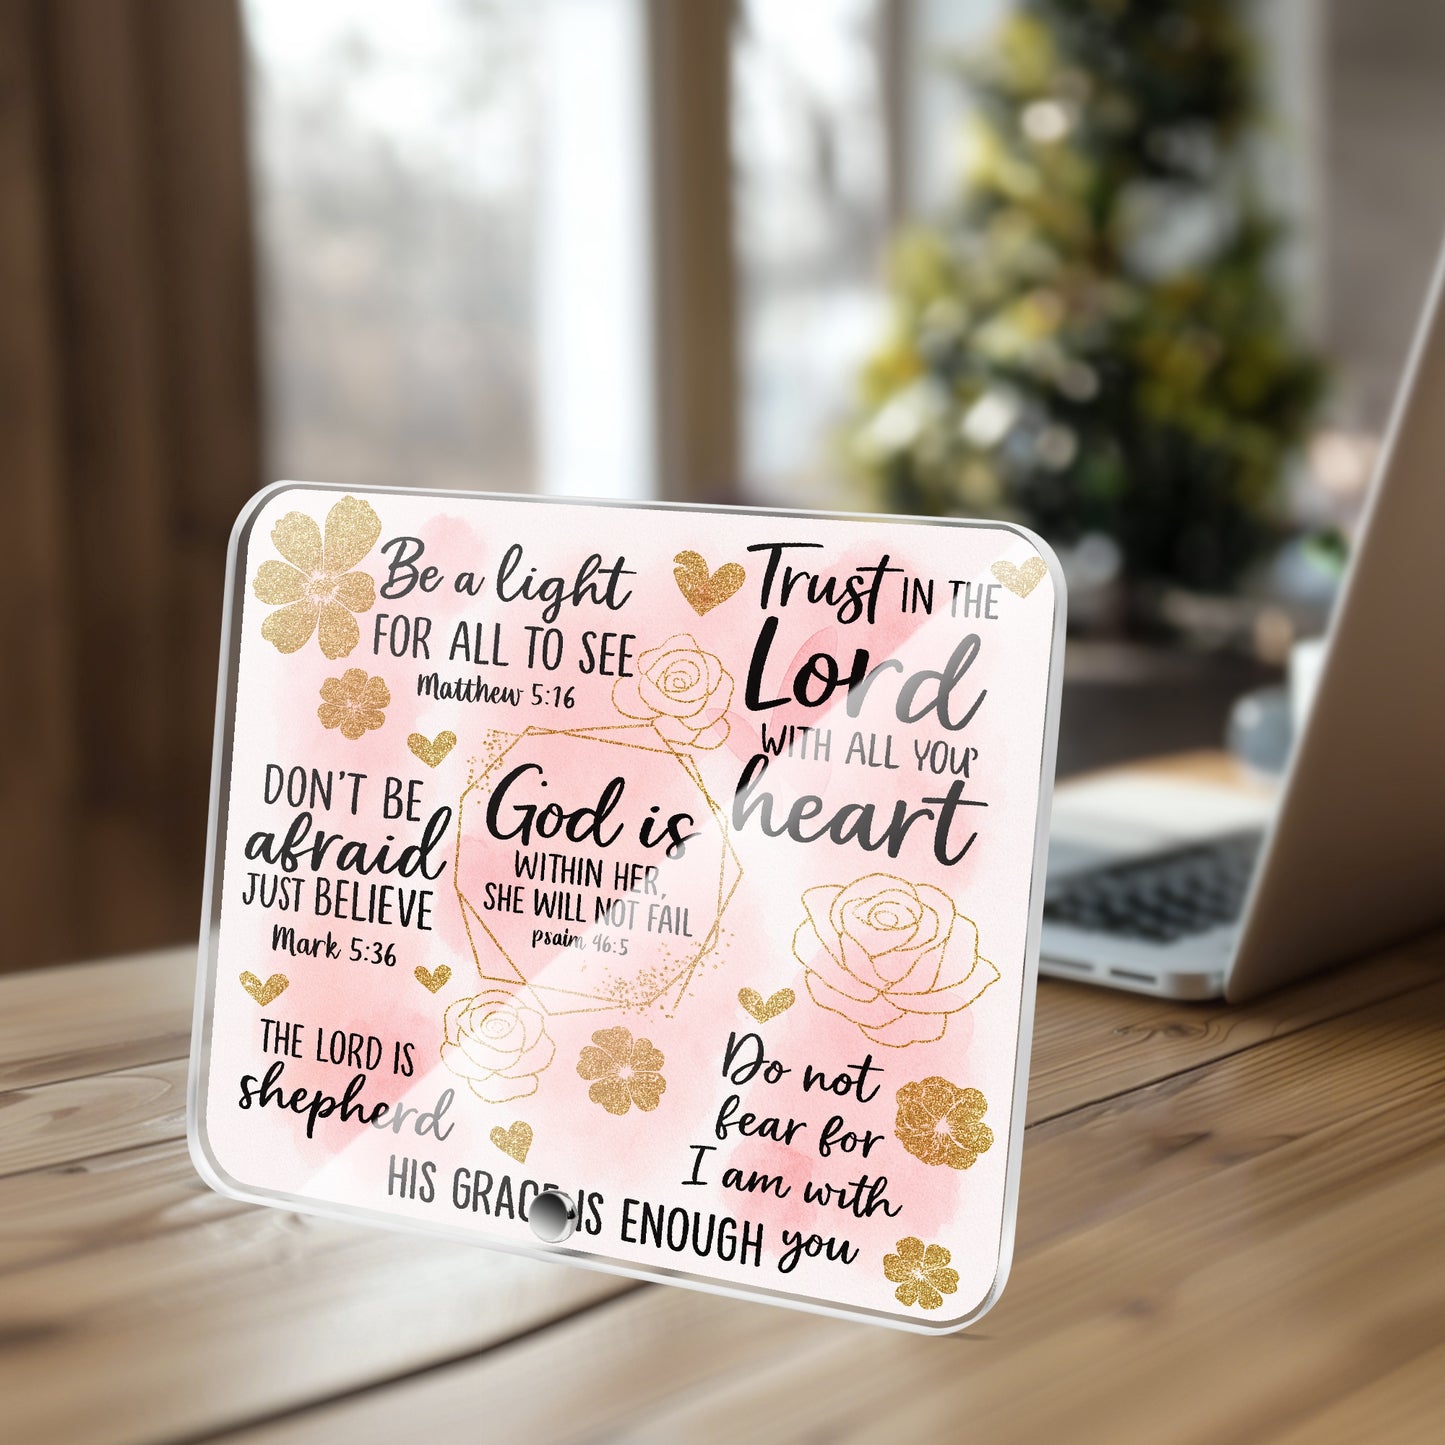 Be a light
FOR ALL TO SEE
Matthew 5:16
Trust IN THE
Lord
WITH ALL YOU'
heart
DON'T BE
afraid
JUST BELIEVE
Mark 5:36
God is
WITHIN HER,
SHE WILL NOT FAIL
psaim 46:5
THE LORD IS
shepherd
Do not
fear for
I am with
you
HIS GRACE IS ENOUGH